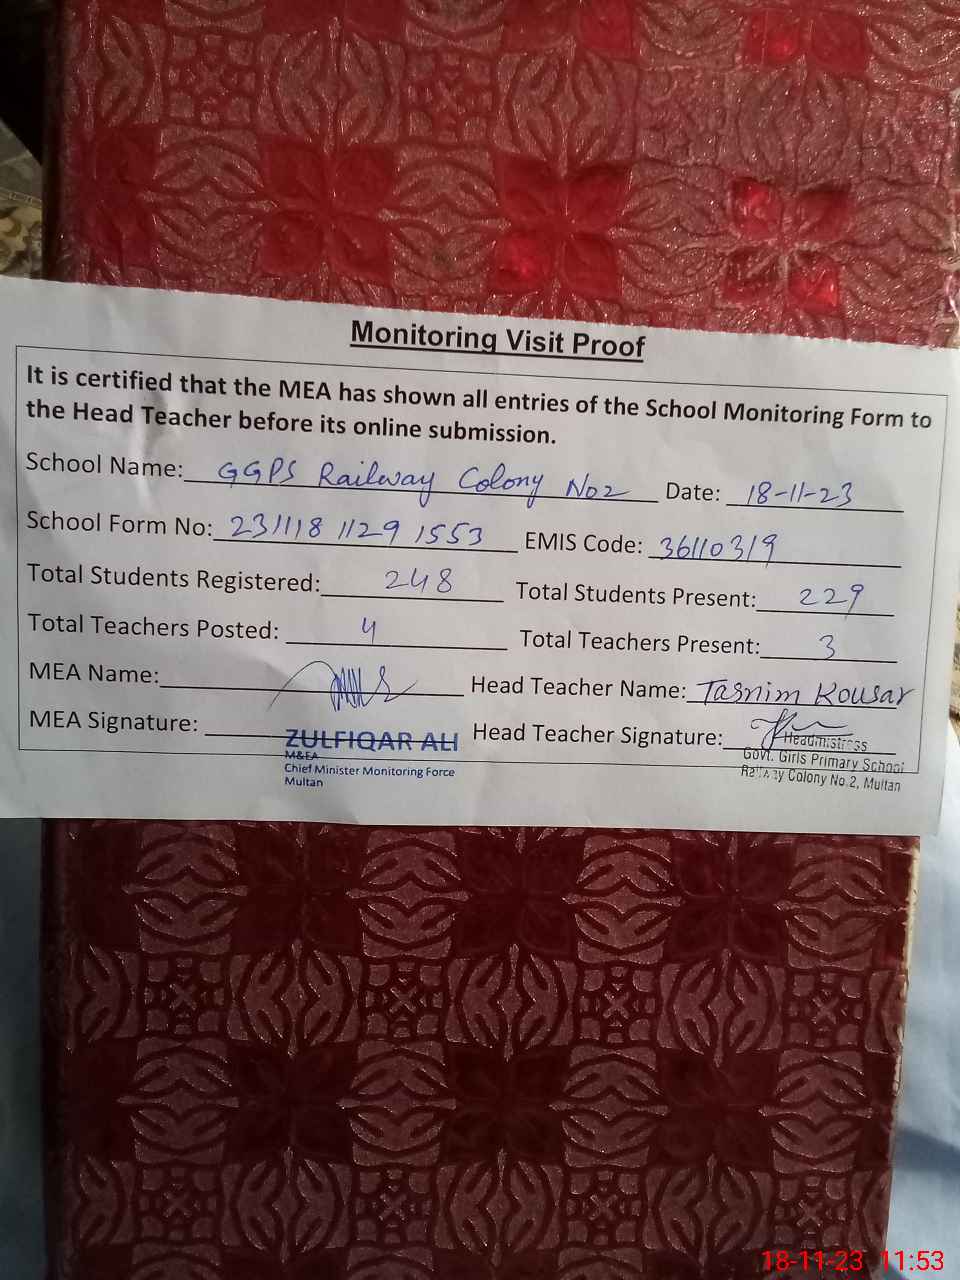 Monitoring Visit Proof
It is certified that the MEA has shown all entries of the School Monitoring Form to
the Head Teacher before its online submission.
School Name: GGPS Railway Colony No2 Date: 18-11-23
School Form No: 231118 1129 1553 EMIS Code: 36110319
Total Students Registered: 248 Total Students Present: 229
Total Teachers Posted: 4 Total Teachers Present: 3
MEA Name: Head Teacher Name: Tasnim Kousar
MEA Signature: Head Teacher Signature:
ZULFIQAR ALI
M&EA
Chief Minister Monitoring Force
Multan
Headmistress
Govt. Girls Primary School
Railway Colony No.2, Multan
18-11-23 11:53